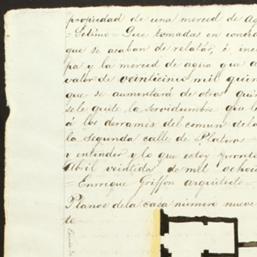 propiedad de una merced de Ag
=Sétimo= Que tomadas en consid
que se acaban de relatar, é inc
pa y la merced de agua que a
valor de veinticinco mil quin
que se aumentará de otros qui
se le quite la servidumbre que t
á los derrames del comun de la
la segunda calle de Plateros
y entender y lo que estoy pronto
Abril veintidos de mil ochocie
=Enrique Griffon arquitecto=
Plano de la casa número nueve
te